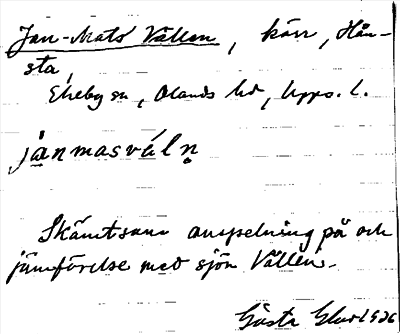 Jan-Mats Vällen, kärr, Hån-
sta,
Ekeby sn, Olands hd, Upps. l.
jánmasväln̥
Skämtsam anspelning på och
jämförelse med sjön Vällen.
Gösta 1926